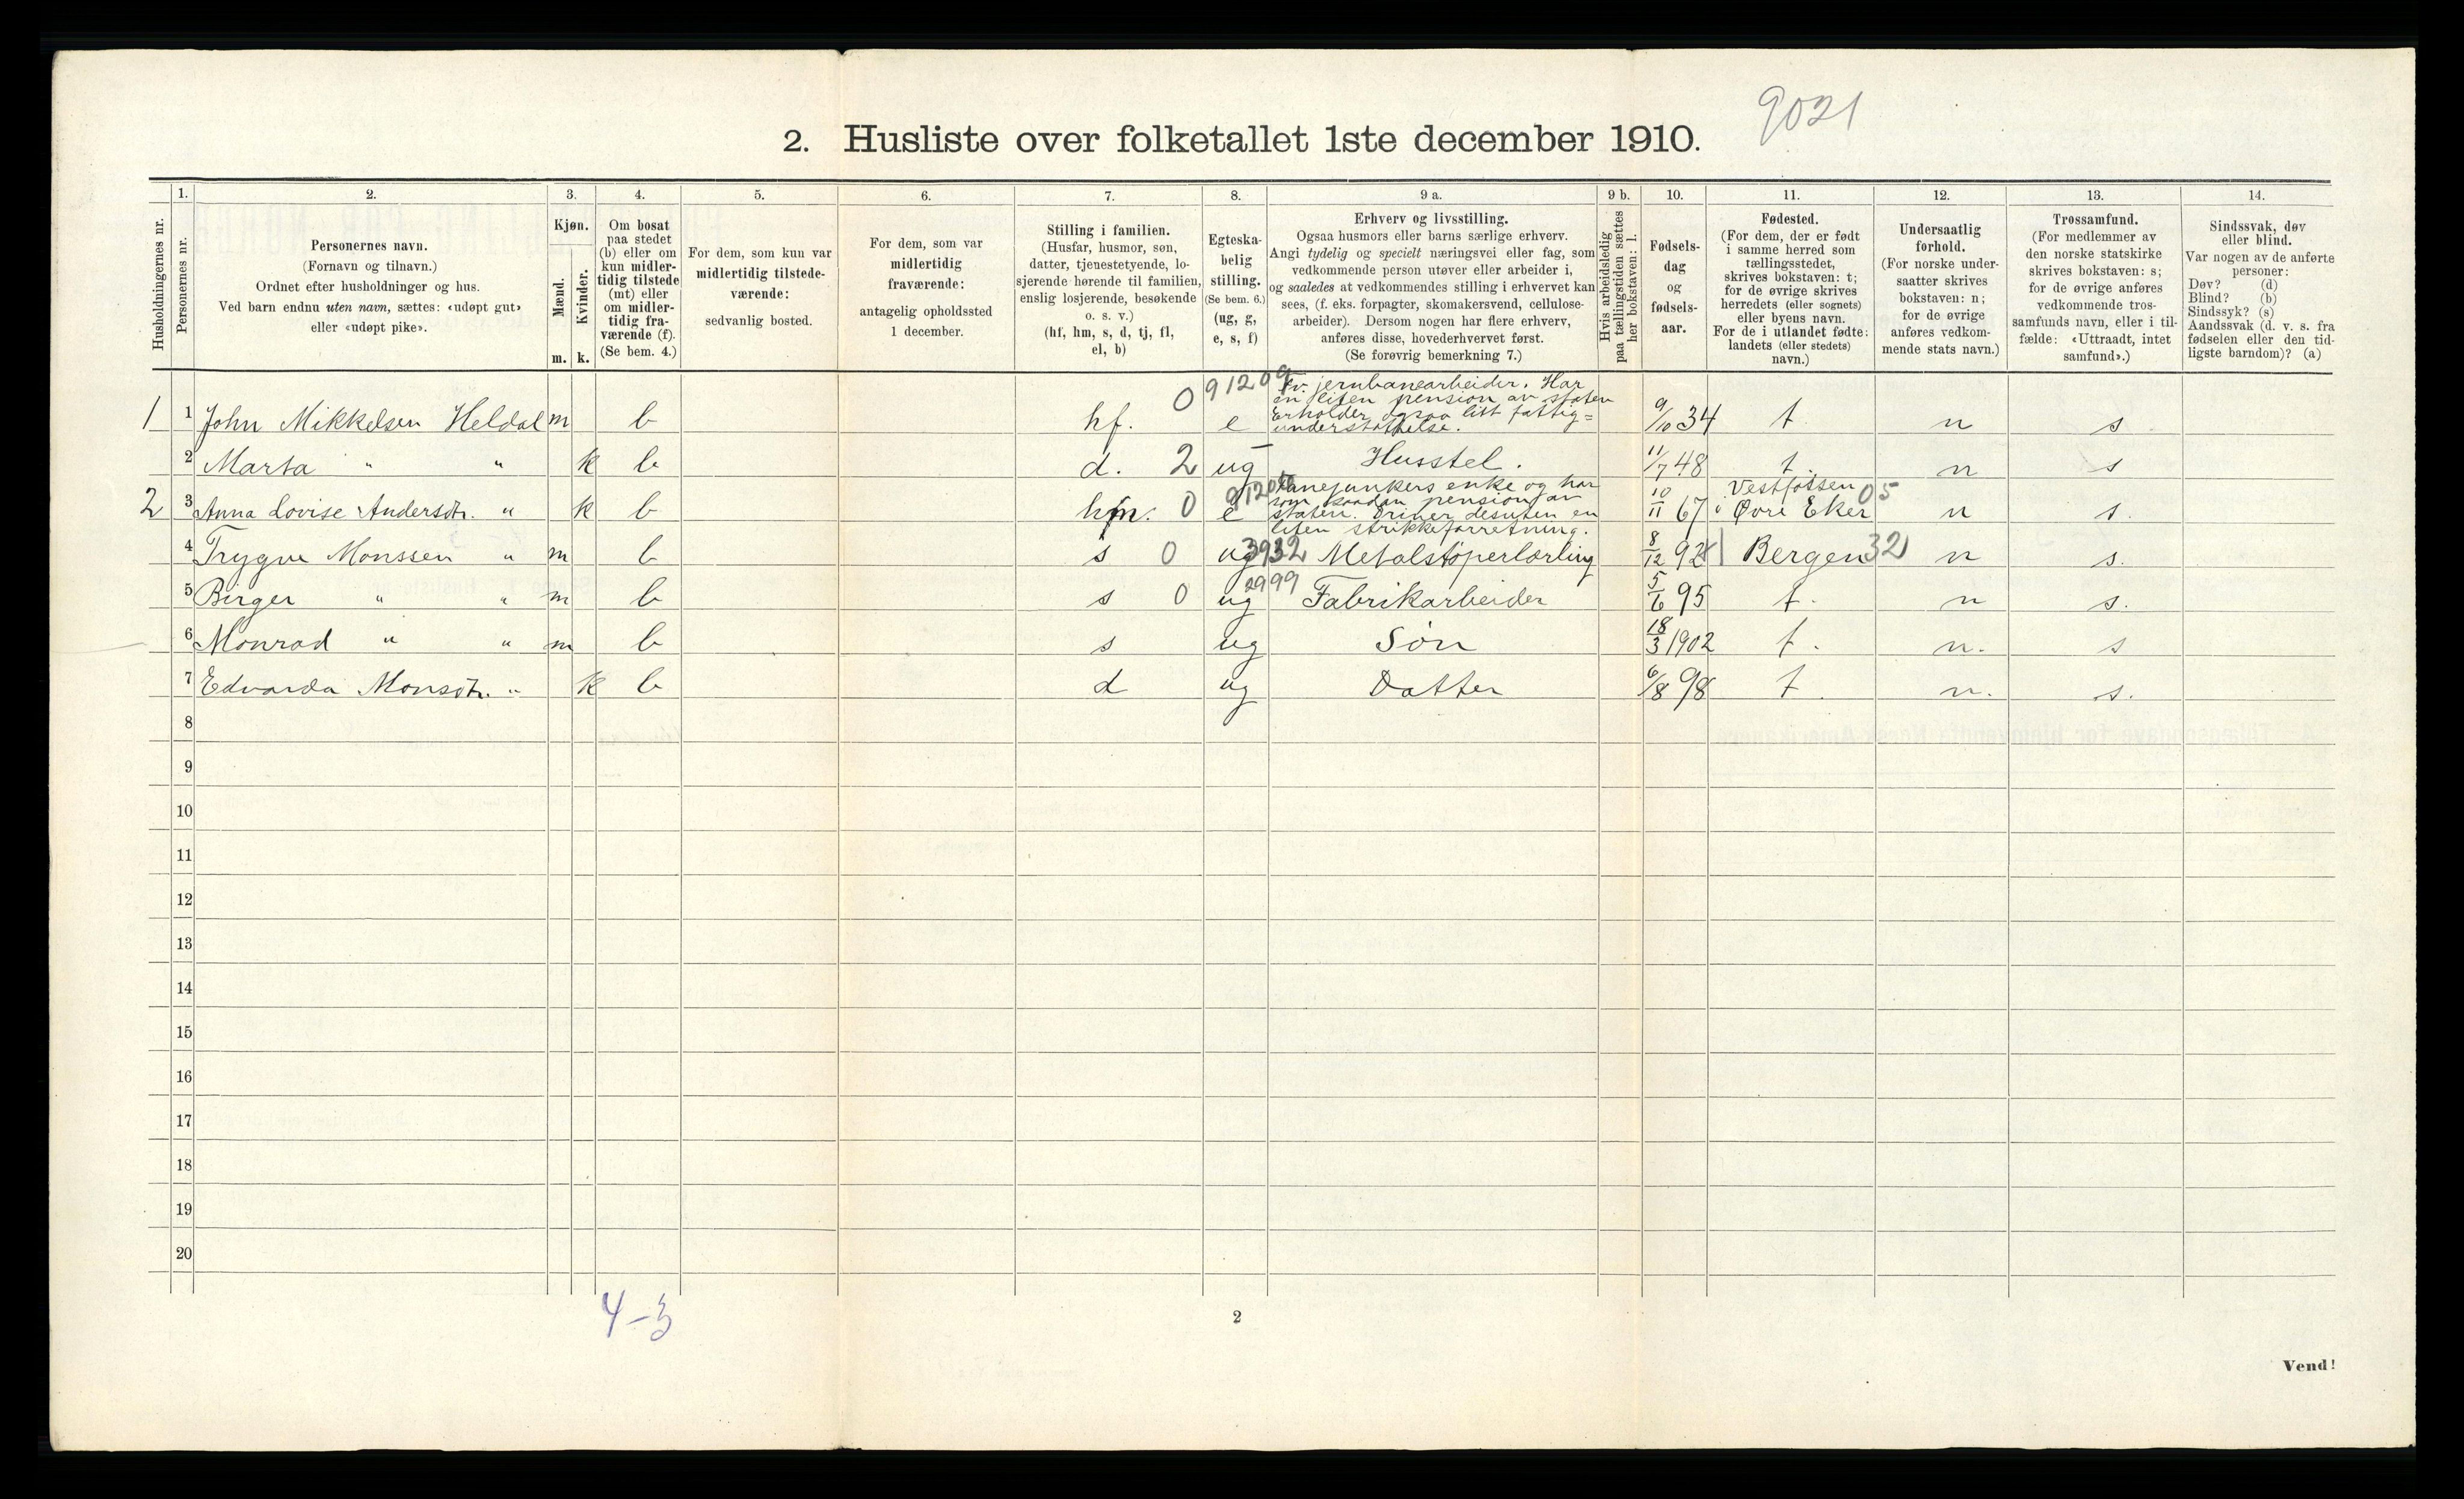 9021
2. Husliste over folketallet 1ste december 1910.
1. 2. 3. 4. 5. 6. 7. 8. 9 a. 9 b. 10. 11. 12. 13. 14.
Husholdningernes nr.
Personernes nr.
Personernes navn.
(Fornavn og tilnavn.)
Ordnet efter husholdninger og hus.
Ved barn endnu uten navn, sættes: «udøpt gut»
eller «udøpt pike».
Kjøn.
Mænd.
Kvinder.
m. k.
Om bosat
paa stedet
(b) eller om
kun midler-
tidig tilstede
(mt) eller
om midler-
tidig fra-
værende (f).
(Se bem. 4.)
For dem, som kun var
midlertidig tilstede-
værende:
sedvanlig bosted.
For dem, som var
midlertidig
fraværende:
antagelig opholdssted
1 december.
Stilling i familien.
(Husfar, husmor, søn,
datter, tjenestetyende, lo-
sjerende hørende til familien,
enslig losjerende, besøkende
o. s. v.)
(hf, hm, s, d, tj, fl,
el, b)
Egteska-
belig
stilling.
(Se bem. 6.)
(ug, g,
e, s, f)
Erhverv og livsstilling.
Ogsaa husmors eller barns særlige erhverv.
Angi tydelig og specielt næringsvei eller fag, som
vedkommende person utøver eller arbeider i,
og saaledes at vedkommendes stilling i erhvervet kan
sees, (f. eks. forpagter, skomakersvend, cellulose-
arbeider). Dersom nogen har flere erhverv,
anføres disse, hovederhvervet først.
(Se forøvrig bemerkning 7.)
Hvis arbeidsledig
paa tællingstiden sættes
her bokstaven: l.
Fødsels-
dag
og
fødsels-
aar.
Fødested.
(For dem, der er født
i samme herred som
tællingsstedet,
skrives bokstaven: t;
for de øvrige skrives
herredets (eller sognets)
eller byens navn.
For de i utlandet fødte:
landets (eller stedets)
navn.)
Undersaatlig
forhold.
(For norske under-
saatter skrives
bokstaven: n;
for de øvrige
anføres vedkom-
mende stats navn.)
Trossamfund.
(For medlemmer av
den norske statskirke
skrives bokstaven: s;
for de øvrige anføres
vedkommende tros-
samfunds navn, eller i til-
fælde: «Uttraadt, intet
samfund».)
Sindssvak, døv
eller blind.
Var nogen av de anførte
personer:
Døv? (d)
Blind? (b)
Sindssyk? (s)
Aandssvak (d. v. s. fra
fødselen eller den tid-
ligste barndom)? (a)
1 1 John Mikkelsen Heldal m b hf. 0 e 91209 Fv. jernbanearbeider. Har
en liten pension av staten
Erholder ogsaa litt fattig=
understøttelse. 9/10 34 t n s
2 Marta " " k b d. 2 ug - Husstel. 11/7 48 t. n s
2 3 Anna Lovise Andersdtr. " k b hm. 0 e 9120 Fanejunkers enke og har
som saadan pension av
staten. Driver desuten en
liten strikkeforretning. 10/11 67 Vestfossen
i Øvre Eker 05 n s.
4 Trygve Monssen " m b s 0 ug 3932 Metalstøperlærling 8/12 92 Bergen 32 n s.
5 Birger " " m b s 0 ug 2999 Fabrikarbeider 5/6 95 t. n s.
6 Monrad " " m b s ug Søn 18/3 1902 t. n. s
7 Edvarda Monsdtr. " k b d ug Datter 6/8 98 t. n. s.
8
9
10
11
12
13
14
15
16
17
18
19
20
4-3
2
Vend!